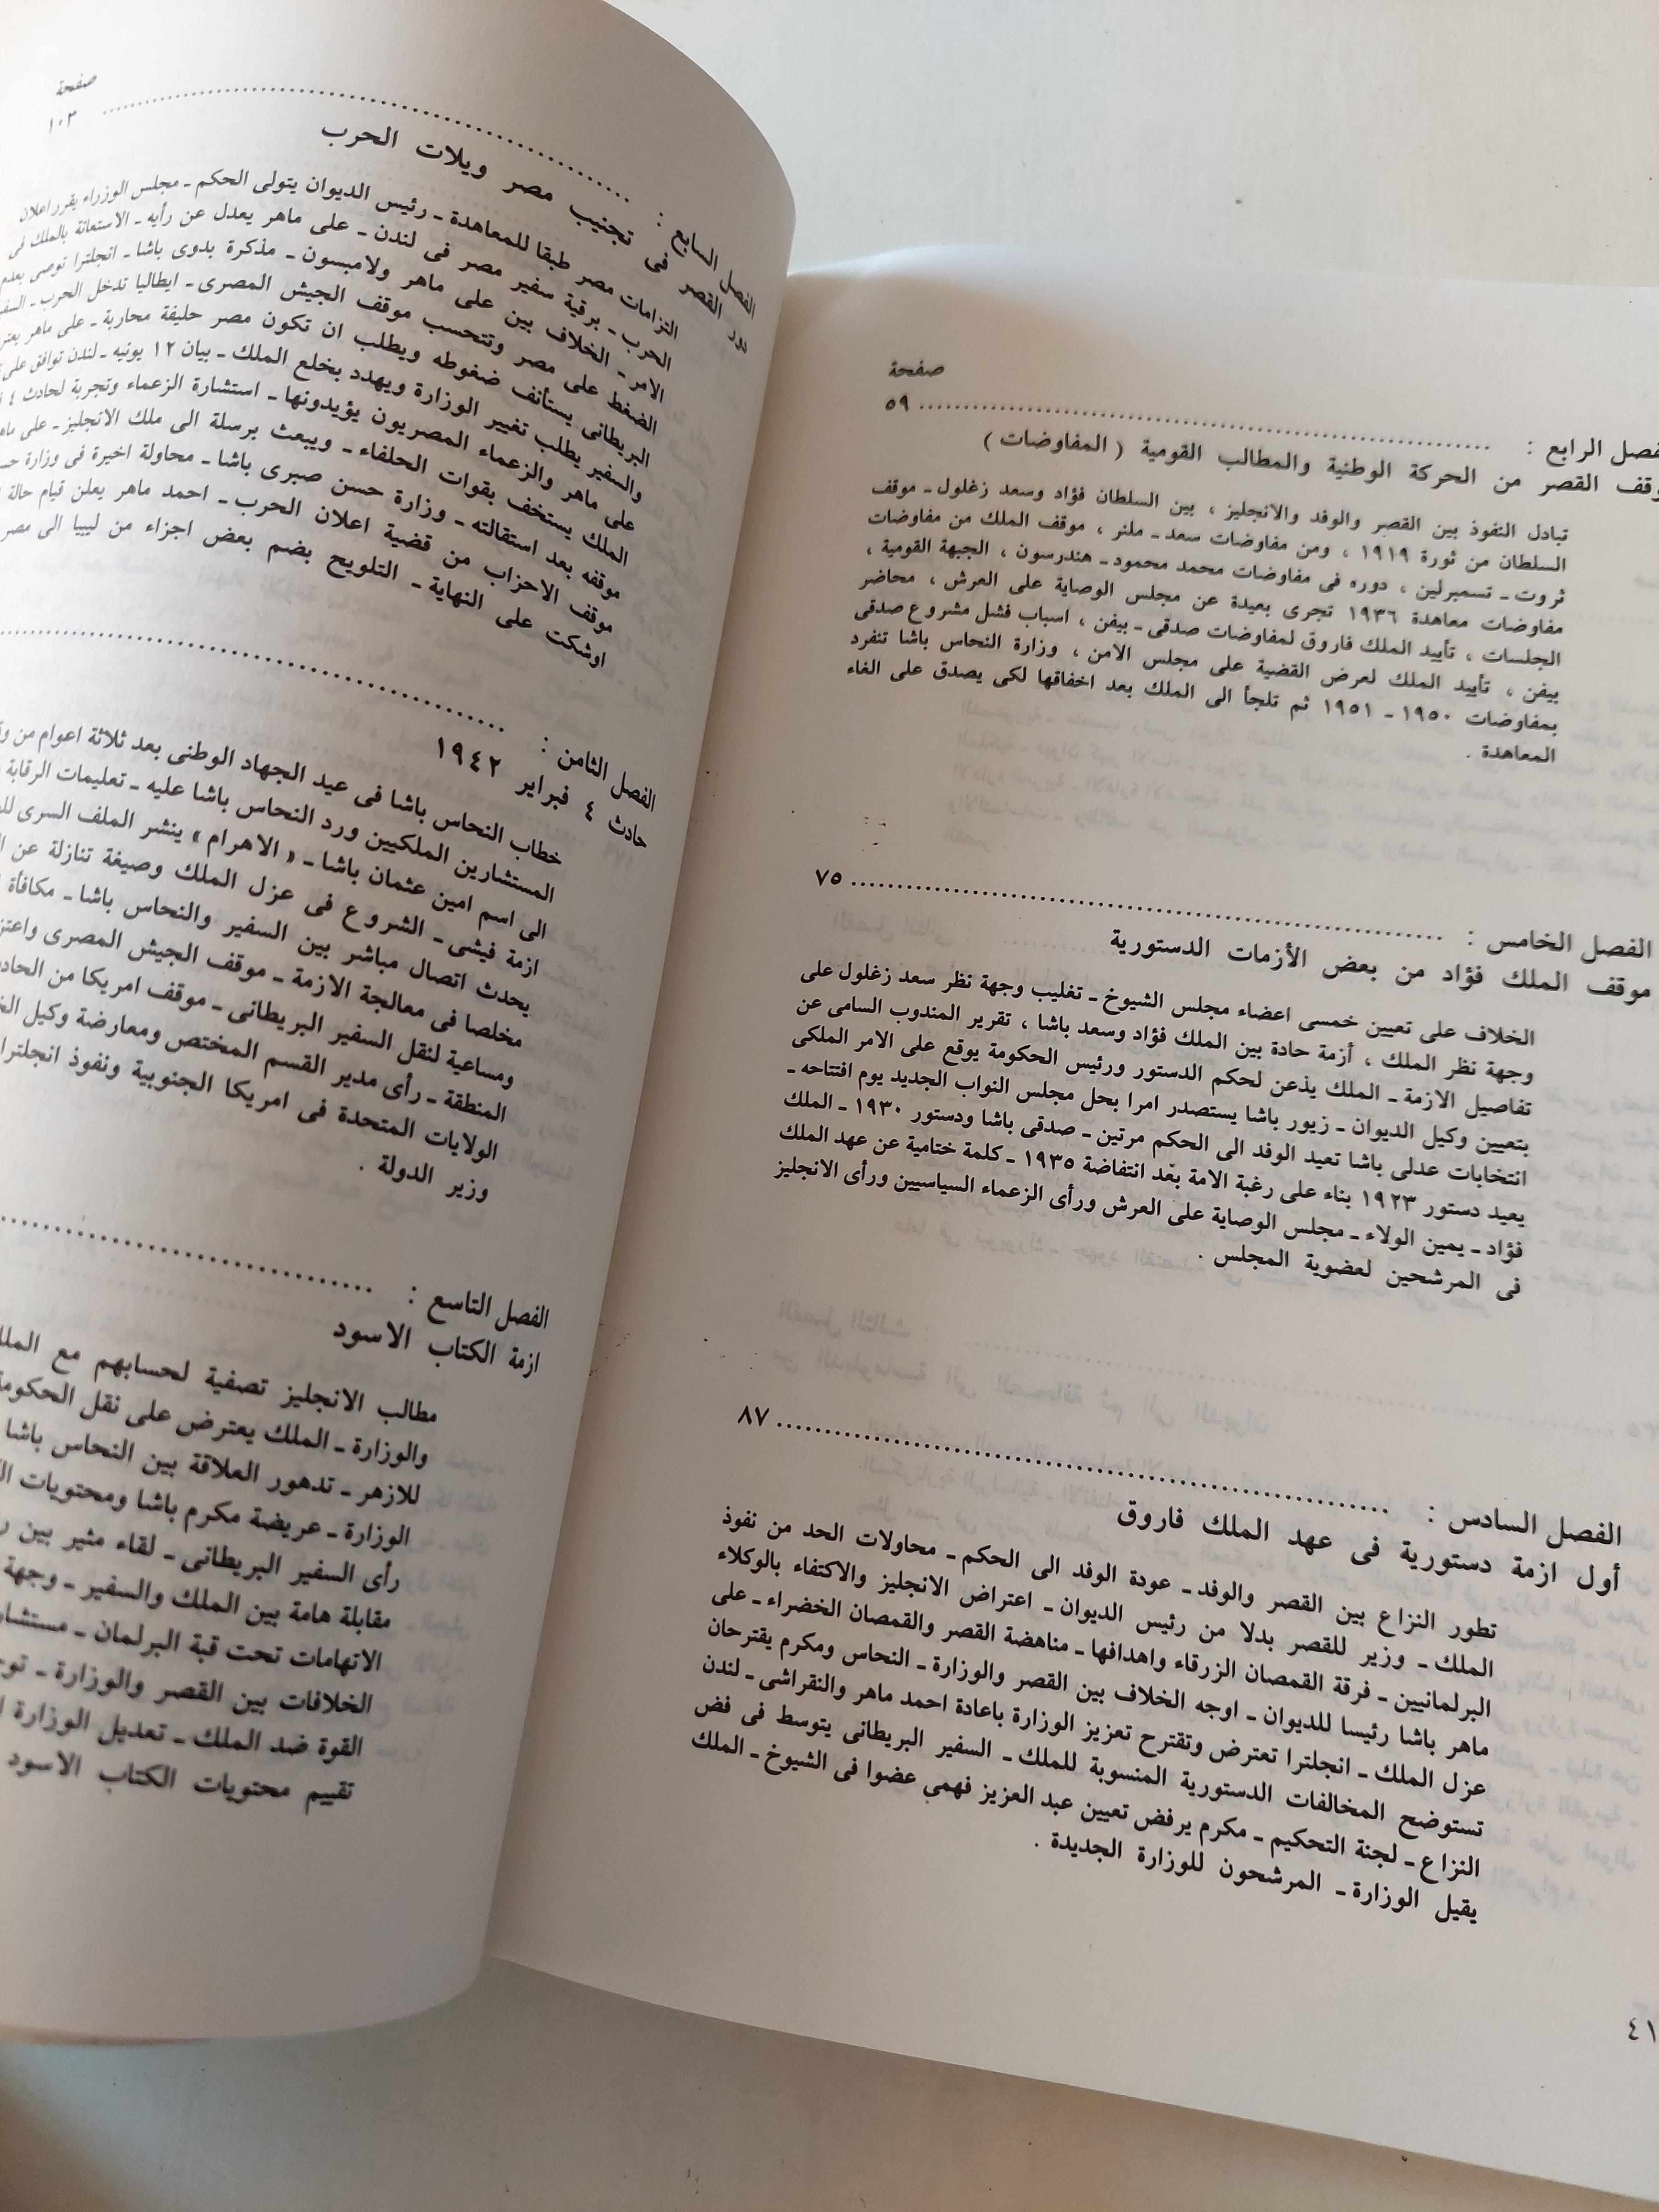 صفحة
فصل الرابع : ........ ٥٩
وقف القصر من الحركة الوطنية والمطالب القومية ( المفاوضات )
تبادل النفوذ بين القصر والوفد والانجليز ، بين السلطان فؤاد وسعد زغلول ـ موقف
السلطان من ثورة ١٩١٩ ، ومن مفاوضات سعد ـ ملنر ، موقف الملك من مفاوضات
ثروت ـ تسمبرلين ، دوره فى مفاوضات محمد محمود ـ هندرسون ، الجبهة القومية ،
مفاوضات معاهدة ١٩٣٦ تجرى بعيدة عن مجلس الوصاية على العرش ، محاضر
الجلسات ، تأييد الملك فاروق لمفاوضات صدقى ـ بيفن ، اسباب فشل مشروع صدقى
بيفن ، تأييد الملك لعرض القضية على مجلس الامن ، وزارة النحاس باشا تنفرد
بمفاوضات ١٩٥٠ ـ ١٩٥١ ثم تلجأ الى الملك بعد اخفاقها لكى يصدق على الغاء
المعاهدة .
الفصل الخامس : ........ ٧٥
موقف الملك فؤاد من بعض الأزمات الدستورية
الخلاف على تعيين خمسى اعضاء مجلس الشيوخ ـ تغليب وجهة نظر سعد زغلول على
وجهة نظر الملك ، أزمة حادة بين الملك فؤاد وسعد باشا ، تقرير المندوب السامى عن
تفاصيل الازمة ـ الملك يذعن لحكم الدستور ورئيس الحكومة يوقع على الامر الملكى
بتعيين وكيل الديوان ـ زيور باشا يستصدر امرا بحل مجلس النواب الجديد يوم افتتاحه ـ
انتخابات عدلى باشا تعيد الوفد الى الحكم مرتين ـ صدقى باشا ودستور ١٩٣٠ ـ الملك
يعيد دستور ١٩٢٣ بناء على رغبة الامة بعد انتفاضة ١٩٣٥ ـ كلمة ختامية عن عهد الملك
فؤاد ـ يمين الولاء ـ مجلس الوصاية على العرش ورأى الزعماء السياسيين ورأى الانجليز
فى المرشحين لعضوية المجلس .
الفصل السادس : ........ ٨٧
أول ازمة دستورية فى عهد الملك فاروق
تطور النزاع بين القصر والوفد ـ عودة الوفد الى الحكم ـ محاولات الحد من نفوذ
الملك ـ وزير للقصر بدلا من رئيس الديوان ـ اعتراض الانجليز والاكتفاء بالوكلاء
البرلمانيين ـ فرقة القمصان الزرقاء واهدافها ـ مناهضة القصر والقمصان الخضراء ـ على
ماهر باشا رئيسا للديوان ـ اوجه الخلاف بين القصر والوزارة ـ النحاس ومكرم يقترحان
عزل الملك ـ انجلترا تعترض وتقترح تعزيز الوزارة باعادة احمد ماهر والنقراشى ـ لندن
تستوضح المخالفات الدستورية المنسوبة للملك ـ السفير البريطانى يتوسط فى فض
النزاع ـ لجنة التحكيم ـ مكرم يرفض تعيين عبد العزيز فهمى عضوا فى الشيوخ ـ الملك
يقيل الوزارة ـ المرشحون للوزارة الجديدة .
٤١
صفحة
الفصل السابع : ........ ١٠٣
دور القصر فى تجنيب مصر ويلات الحرب
التزامات مصر طبقا للمعاهدة ـ رئيس الديوان يتولى الحكم ـ مجلس الوزراء يقرر اعلان
الحرب ـ برقية سفير مصر فى لندن ـ على ماهر يعدل عن رأيه ـ الاستعانة بالملك فى
الامر ـ الخلاف بين على ماهر ولامبسون ـ مذكرة بدوى باشا ـ انجلترا توصى بعدم
الضغط على مصر وتتحسب موقف الجيش المصرى ـ ايطاليا تدخل الحرب ـ
البريطانى يستأنف ضغوطه ويطلب ان تكون مصر حليفة محاربة ـ على ماهر
والسفير يطلب تغيير الوزارة ويهدد بخلع الملك ـ بيان ١٢ يونيه ـ لندن توافق على
على ماهر والزعماء المصريون يؤيدونها ـ استشارة الزعماء وتجربة لحادث ٤
الملك يستخف بقوات الحلفاء ـ ويبعث برسلة الى ملك الانجليز ـ على
موقفه بعد استقالته ـ وزارة حسن صبرى باشا ـ محاولة اخيرة فى وزارة
موقف الاحزاب من قضية اعلان الحرب ـ احمد ماهر يعلن قيام حالة
اوشكت على النهاية ـ التلويح بضم بعض اجزاء من ليبيا الى مصر
الفصل الثامن : ........
حادث ٤ فبراير ١٩٤٢
خطاب النحاس باشا فى عيد الجهاد الوطنى بعد ثلاثة اعوام من
المستشارين الملكيين ورد النحاس باشا عليه ـ تعليمات الرقابة
الى اسم امين عثمان باشا ـ « الاهرام » ينشر الملف السرى
ازمة فيشى ـ الشروع فى عزل الملك وصيغة تنازلة عن
يحدث اتصال مباشر بين السفير والنحاس باشا ـ مكافأة
مخلصا فى معالجة الازمة ـ موقف الجيش المصرى
ومساعية لنقل السفير البريطانى ـ موقف امريكا من
المنطقة ـ رأى مدير القسم المختص ومعارضة وكيل
الولايات المتحدة فى امريكا الجنوبية ونفوذ انجلترا
وزير الدولة .
الفصل التاسع : ........
ازمة الكتاب الاسود
مطالب الانجليز تصفية لحسابهم مع
والوزارة ـ الملك يعترض على نقل
للازهر ـ تدهور العلاقة بين النحاس باشا
الوزارة ـ عريضة مكرم باشا ومحتويات
رأى السفير البريطانى ـ لقاء مثير بين
مقابلة هامة بين الملك والسفير ـ وجهة
الاتهامات تحت قبة البرلمان ـ
الخلافات بين القصر والوزارة ـ
القوة ضد الملك ـ تعديل الوزارة
تقييم محتويات الكتاب الاسود